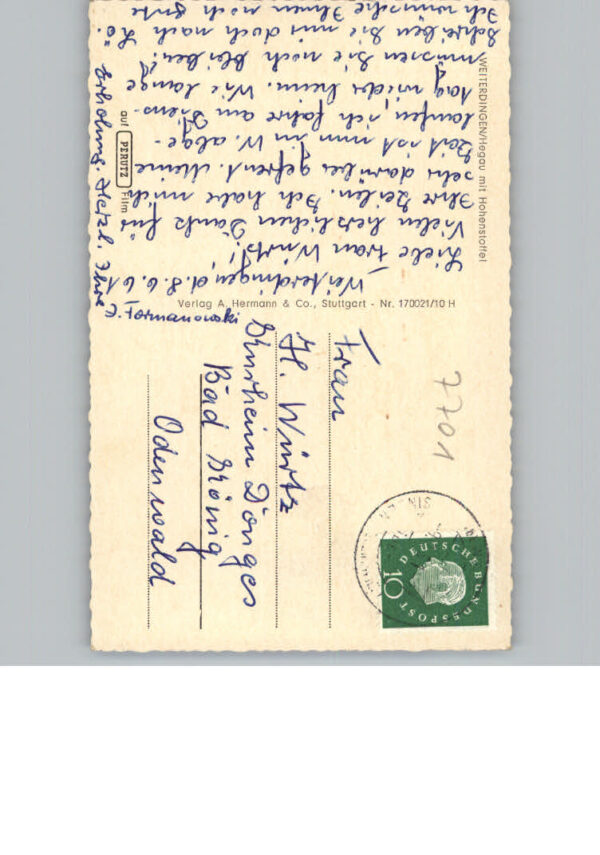 WEITERDINGEN/Hegau mit Hohenstoffel
Weiterdingen d. 8. 6. 61
Liebe Frau Würtz!
Vielen herzlichen Dank für
Ihre Zeilen. Ich habe mich
sehr darüber gefreut. Meine
Zeit ist nun in W. abge-
laufen, ich fahre am Diens-
tag wieder heim. Wie lange
müssen Sie noch bleiben?
Schreiben Sie mir doch nach Lö.
Ich wünsche Ihnen noch gute
Erholung. Herzl. Ihre
E. Formanowski
auf PERUTZ Film
Verlag A. Hermann & Co., Stuttgart - Nr. 170021/10 H
Frau
H. Würtz
Kurheim Dönges
Bad König
Odenwald
7701
DEUTSCHE BUNDESPOST
10